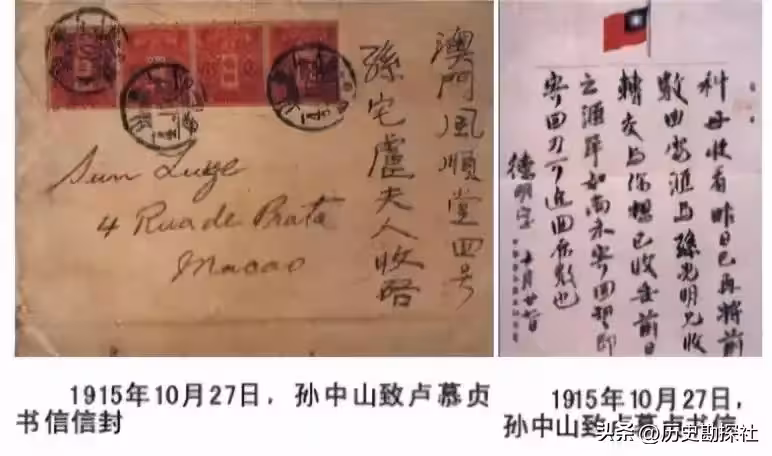 澳門風順堂四号
孫宅盧夫人收啓
Sun Luze
4 Rua de Prata
Macao
科母收看昨日已再將前
數由安滙与孫光明兄收
轉交与你想已收妥前日
之滙單如尚未寄回望即
寄回刀可追回原數也
德明字 十月廿七日
1915年10月27日，孙中山致卢慕贞
书信信封
1915年10月27日，
孙中山致卢慕贞书信
头条 @历史勘探社